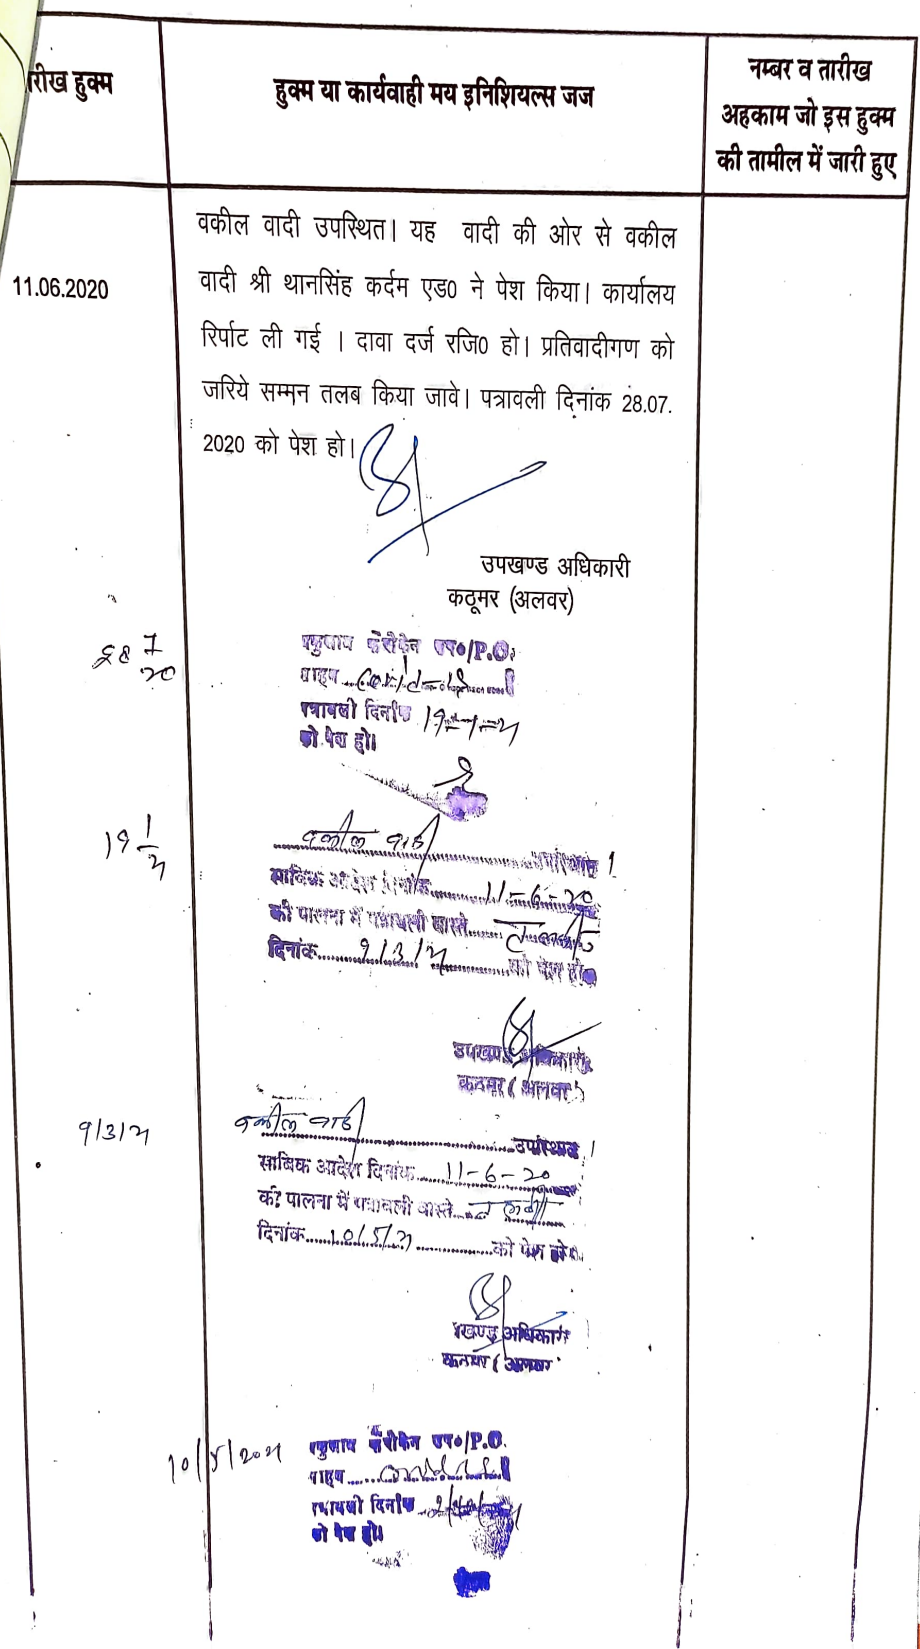 रीख हुक्म
हुक्म या कार्यवाही मय इनिशियल्स जज
नम्बर व तारीख
अहकाम जो इस हुक्म
की तामील में जारी हुए
11.06.2020
वकील वादी उपस्थित। यह वादी की ओर से वकील
वादी श्री थानसिंह कर्दम एड0 ने पेश किया। कार्यालय
रिर्पाट ली गई । दावा दर्ज रजि0 हो। प्रतिवादीगण को
जरिये सम्मन तलब किया जावे। पत्रावली दिनांक 28.07.
2020 को पेश हो।
उपखण्ड अधिकारी
कठूमर (अलवर)
28 7/20
/P.O.
Covid-19
पत्रावली दिनांक 19-1-21
को पेश हो।
19 1/21
वकील वादी
साबिक आदेश दिनांक 11-6-20
की पालना में पत्रावली वास्ते तलबी
दिनांक 9/3/21 को पेश हो।
उपखण्ड अधिकारी
कठूमर (अलवर)
9/3/21
वकील वादी उपस्थित।
साबिक आदेश दिनांक 11-6-20
की पालना में पत्रावली वास्ते तलबी
दिनांक 10/5/21 को पेश हो।
खण्ड अधिकारी
कठूमर (अलवर
10/5/2021
/P.O.
पत्रावली दिनांक
को पेश हो।